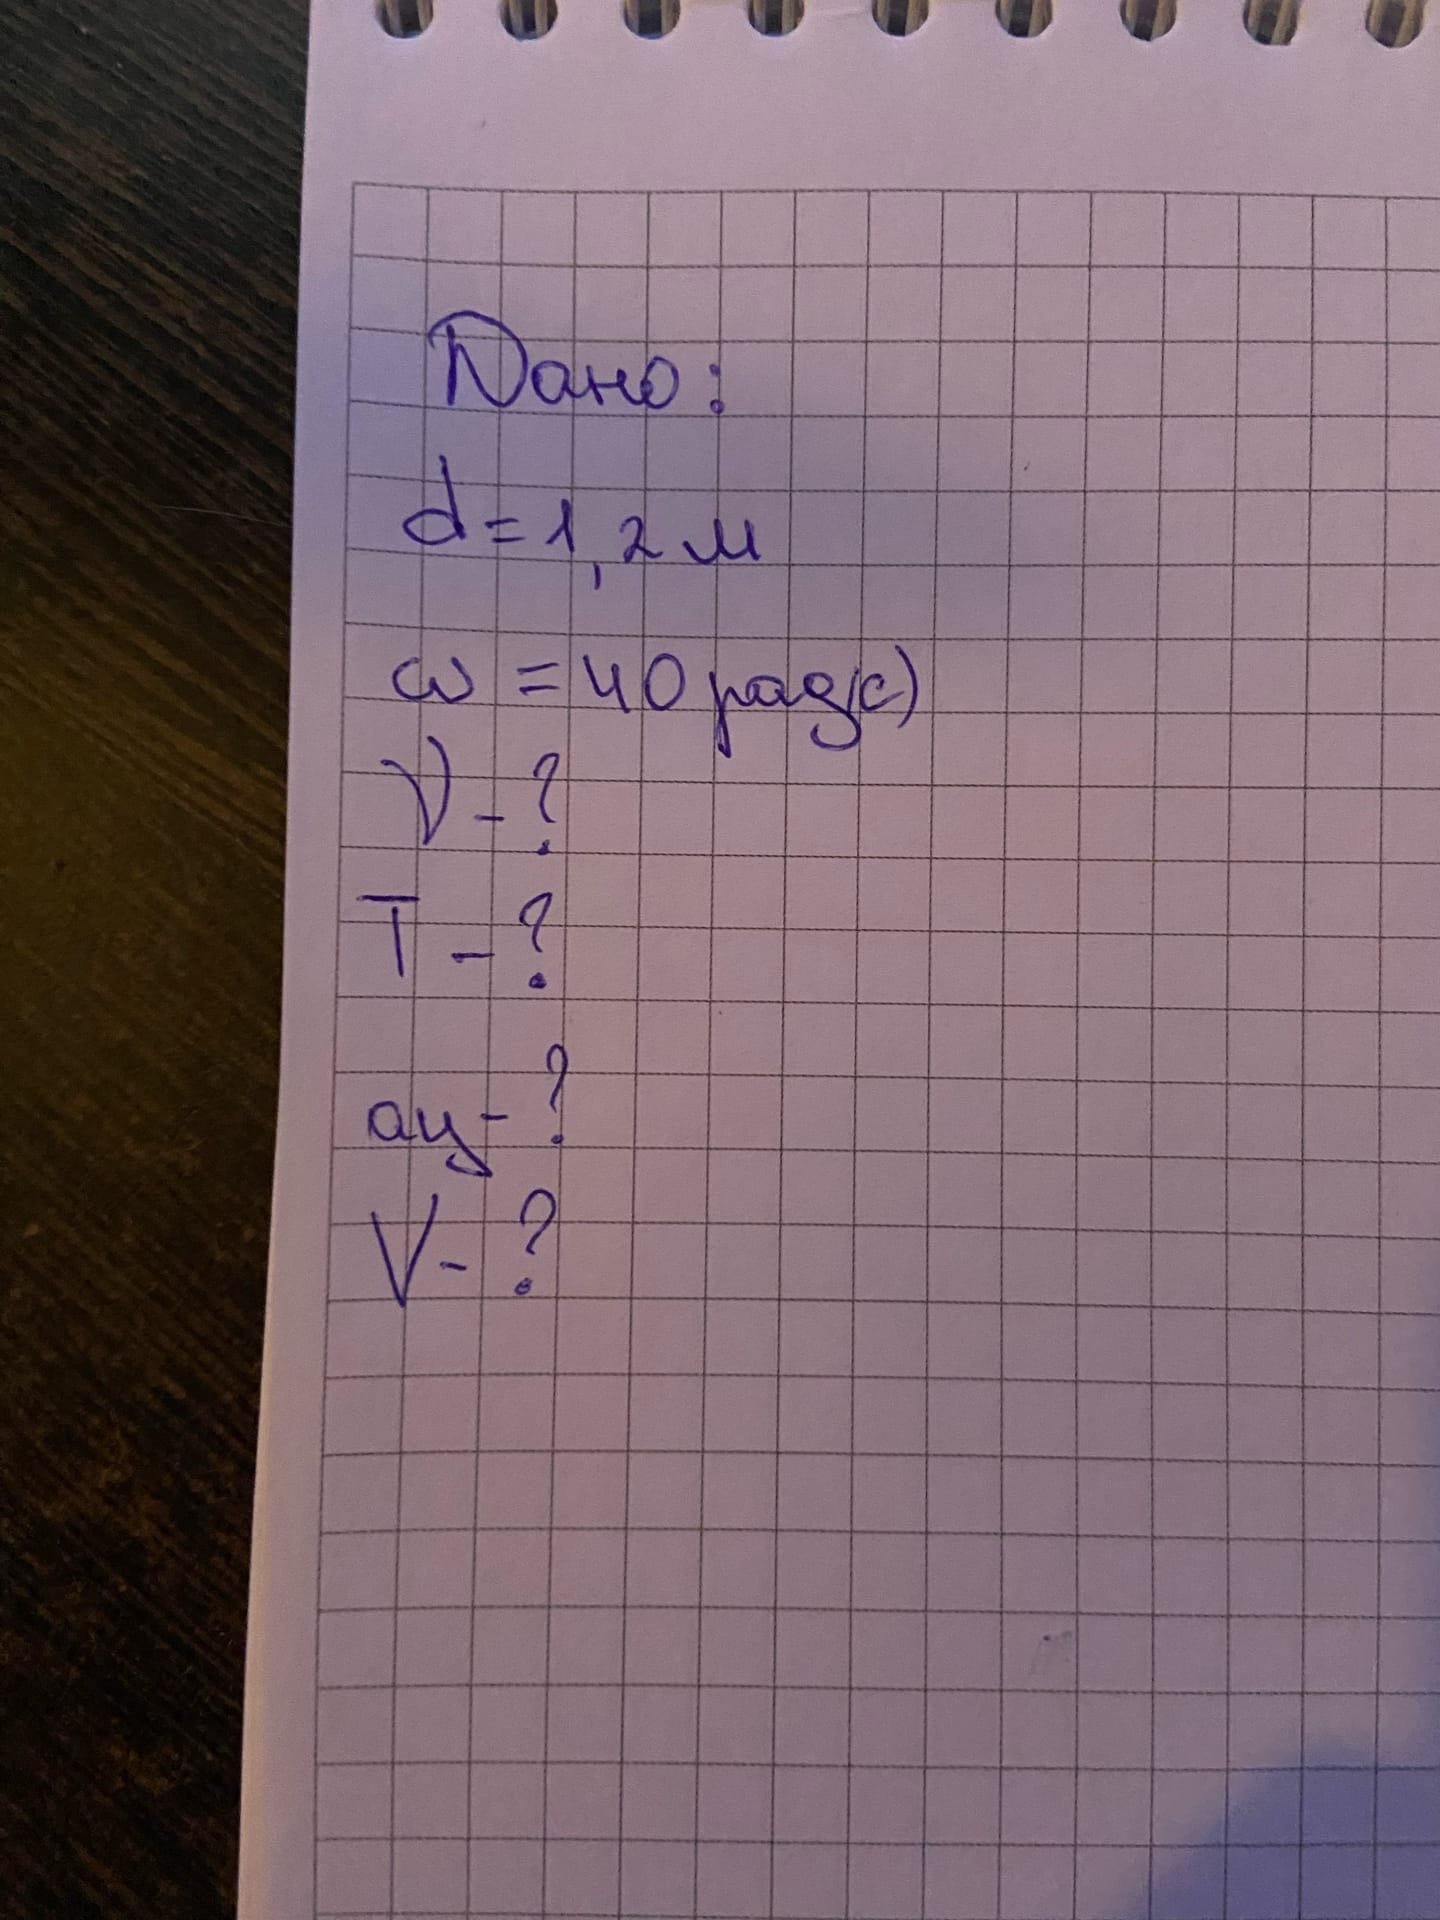 Дано:
d = 1,2 м
ω = 40 рад/с)
ν - ?
T - ?
aц - ?
V - ?